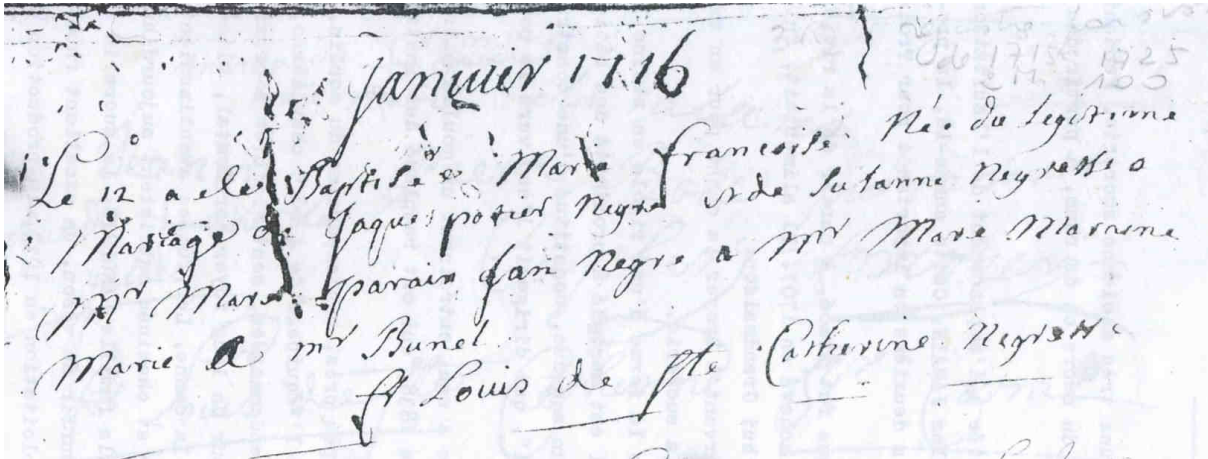 Janvier 1716
Le 12 a ete Baptisée Marie francoise Née du legitime
Mariage de Jaques potier Negre et de Susanne Negresse a
Mr Mare parain Jan Negre a Mr Mare Maraine
Marie a mr Bunel
fr Louis de Ste Catherine Negresse